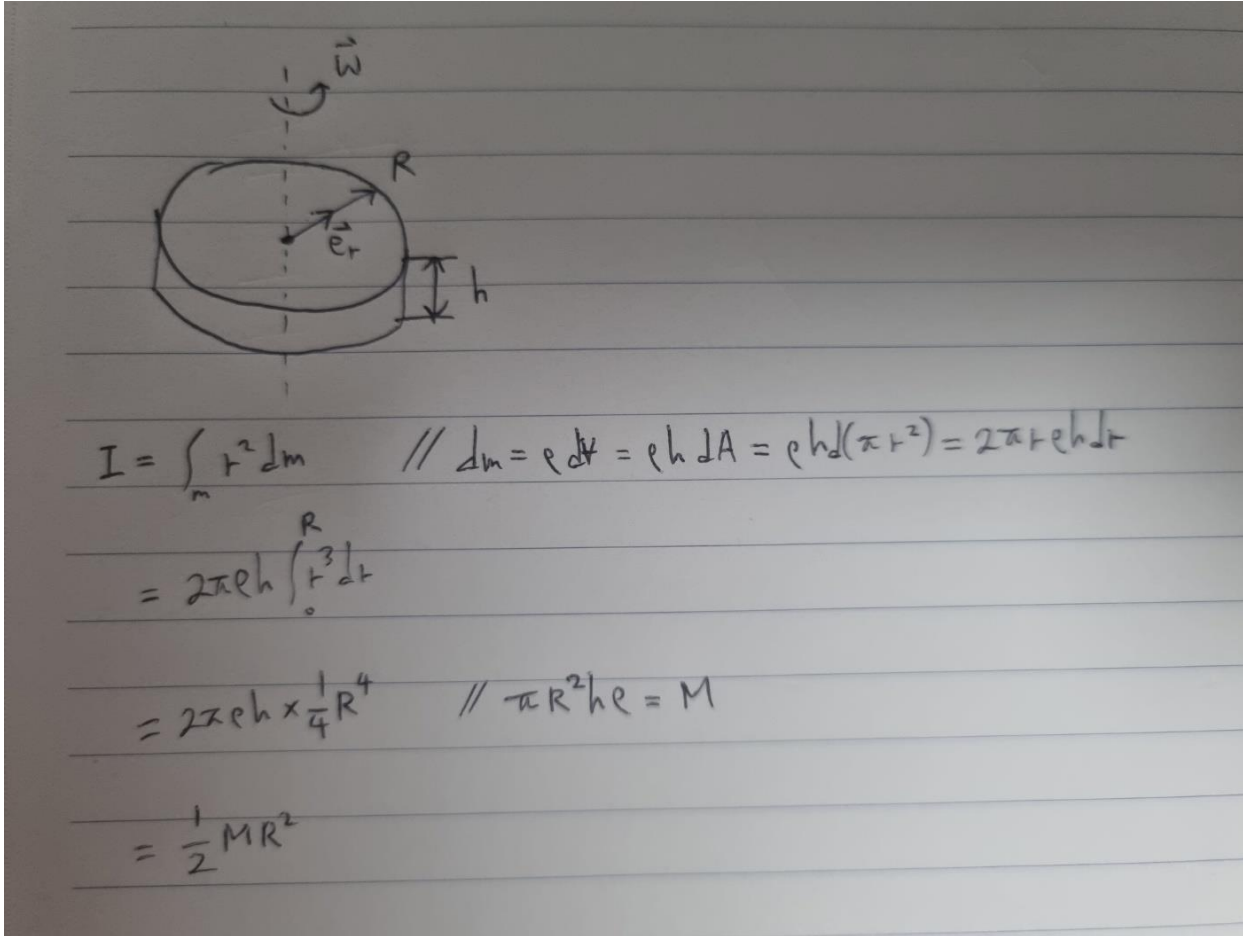 ω⃗
R
e⃗ᵣ
h
I = ∫ₘ r² dm // dm = ρ dV = ρh dA = ρhd(πr²) = 2πrρhdr
= 2πρh ∫₀ᴿ r³ dr
= 2πρh × 1/4 R⁴ // πR²hρ = M
= 1/2 MR²